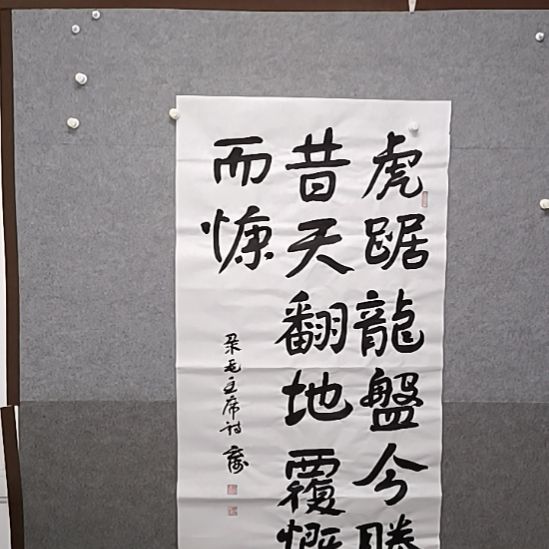 虎踞龍盤今勝
昔天翻地覆慨
而慷
录毛主席诗